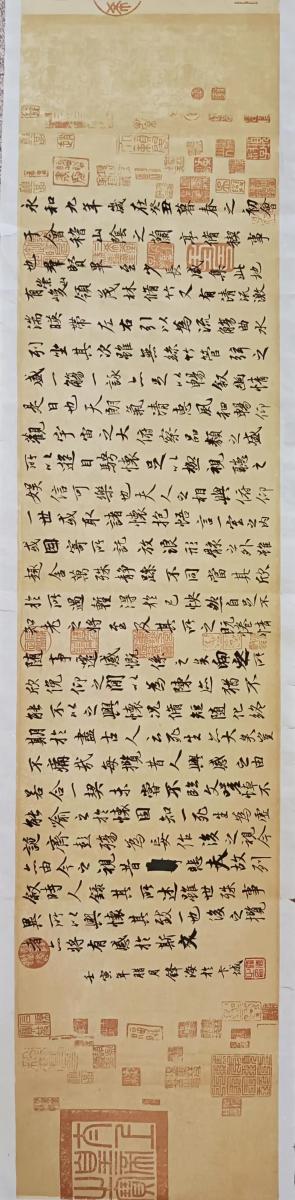 永和九年歲在癸丑暮春之初會
于會稽山陰之蘭亭脩禊事
也羣賢畢至少長咸集此地
有崇山峻領茂林脩竹又有清流激
湍暎帶左右引以為流觴曲水
列坐其次雖無絲竹管弦之
盛一觴一詠亦足以暢叙幽情
是日也天朗氣清惠風和暢仰
觀宇宙之大俯察品類之盛
所以遊目騁懷足以極視聽之
娛信可樂也夫人之相與俯仰
一世或取諸懷抱悟言一室之內
或因寄所託放浪形骸之外雖
趣舍萬殊靜躁不同當其欣
於所遇蹔得於己快然自足不
知老之將至及其所之既惓情
隨事遷感慨係之矣向之所
欣俛仰之閒以為陳迹猶不
能不以之興懷況脩短隨化終
期於盡古人云死生亦大矣豈
不痛哉每攬昔人興感之由
若合一契未嘗不臨文嗟悼不
能喻之於懷固知一死生為虛
誕齊彭殤為妄作後之視今
亦由今之視昔悲夫故列
叙時人錄其所述雖世殊事
異所以興懷其致一也後之攬
者亦將有感於斯文
壬寅年腊月鋒海於卞城